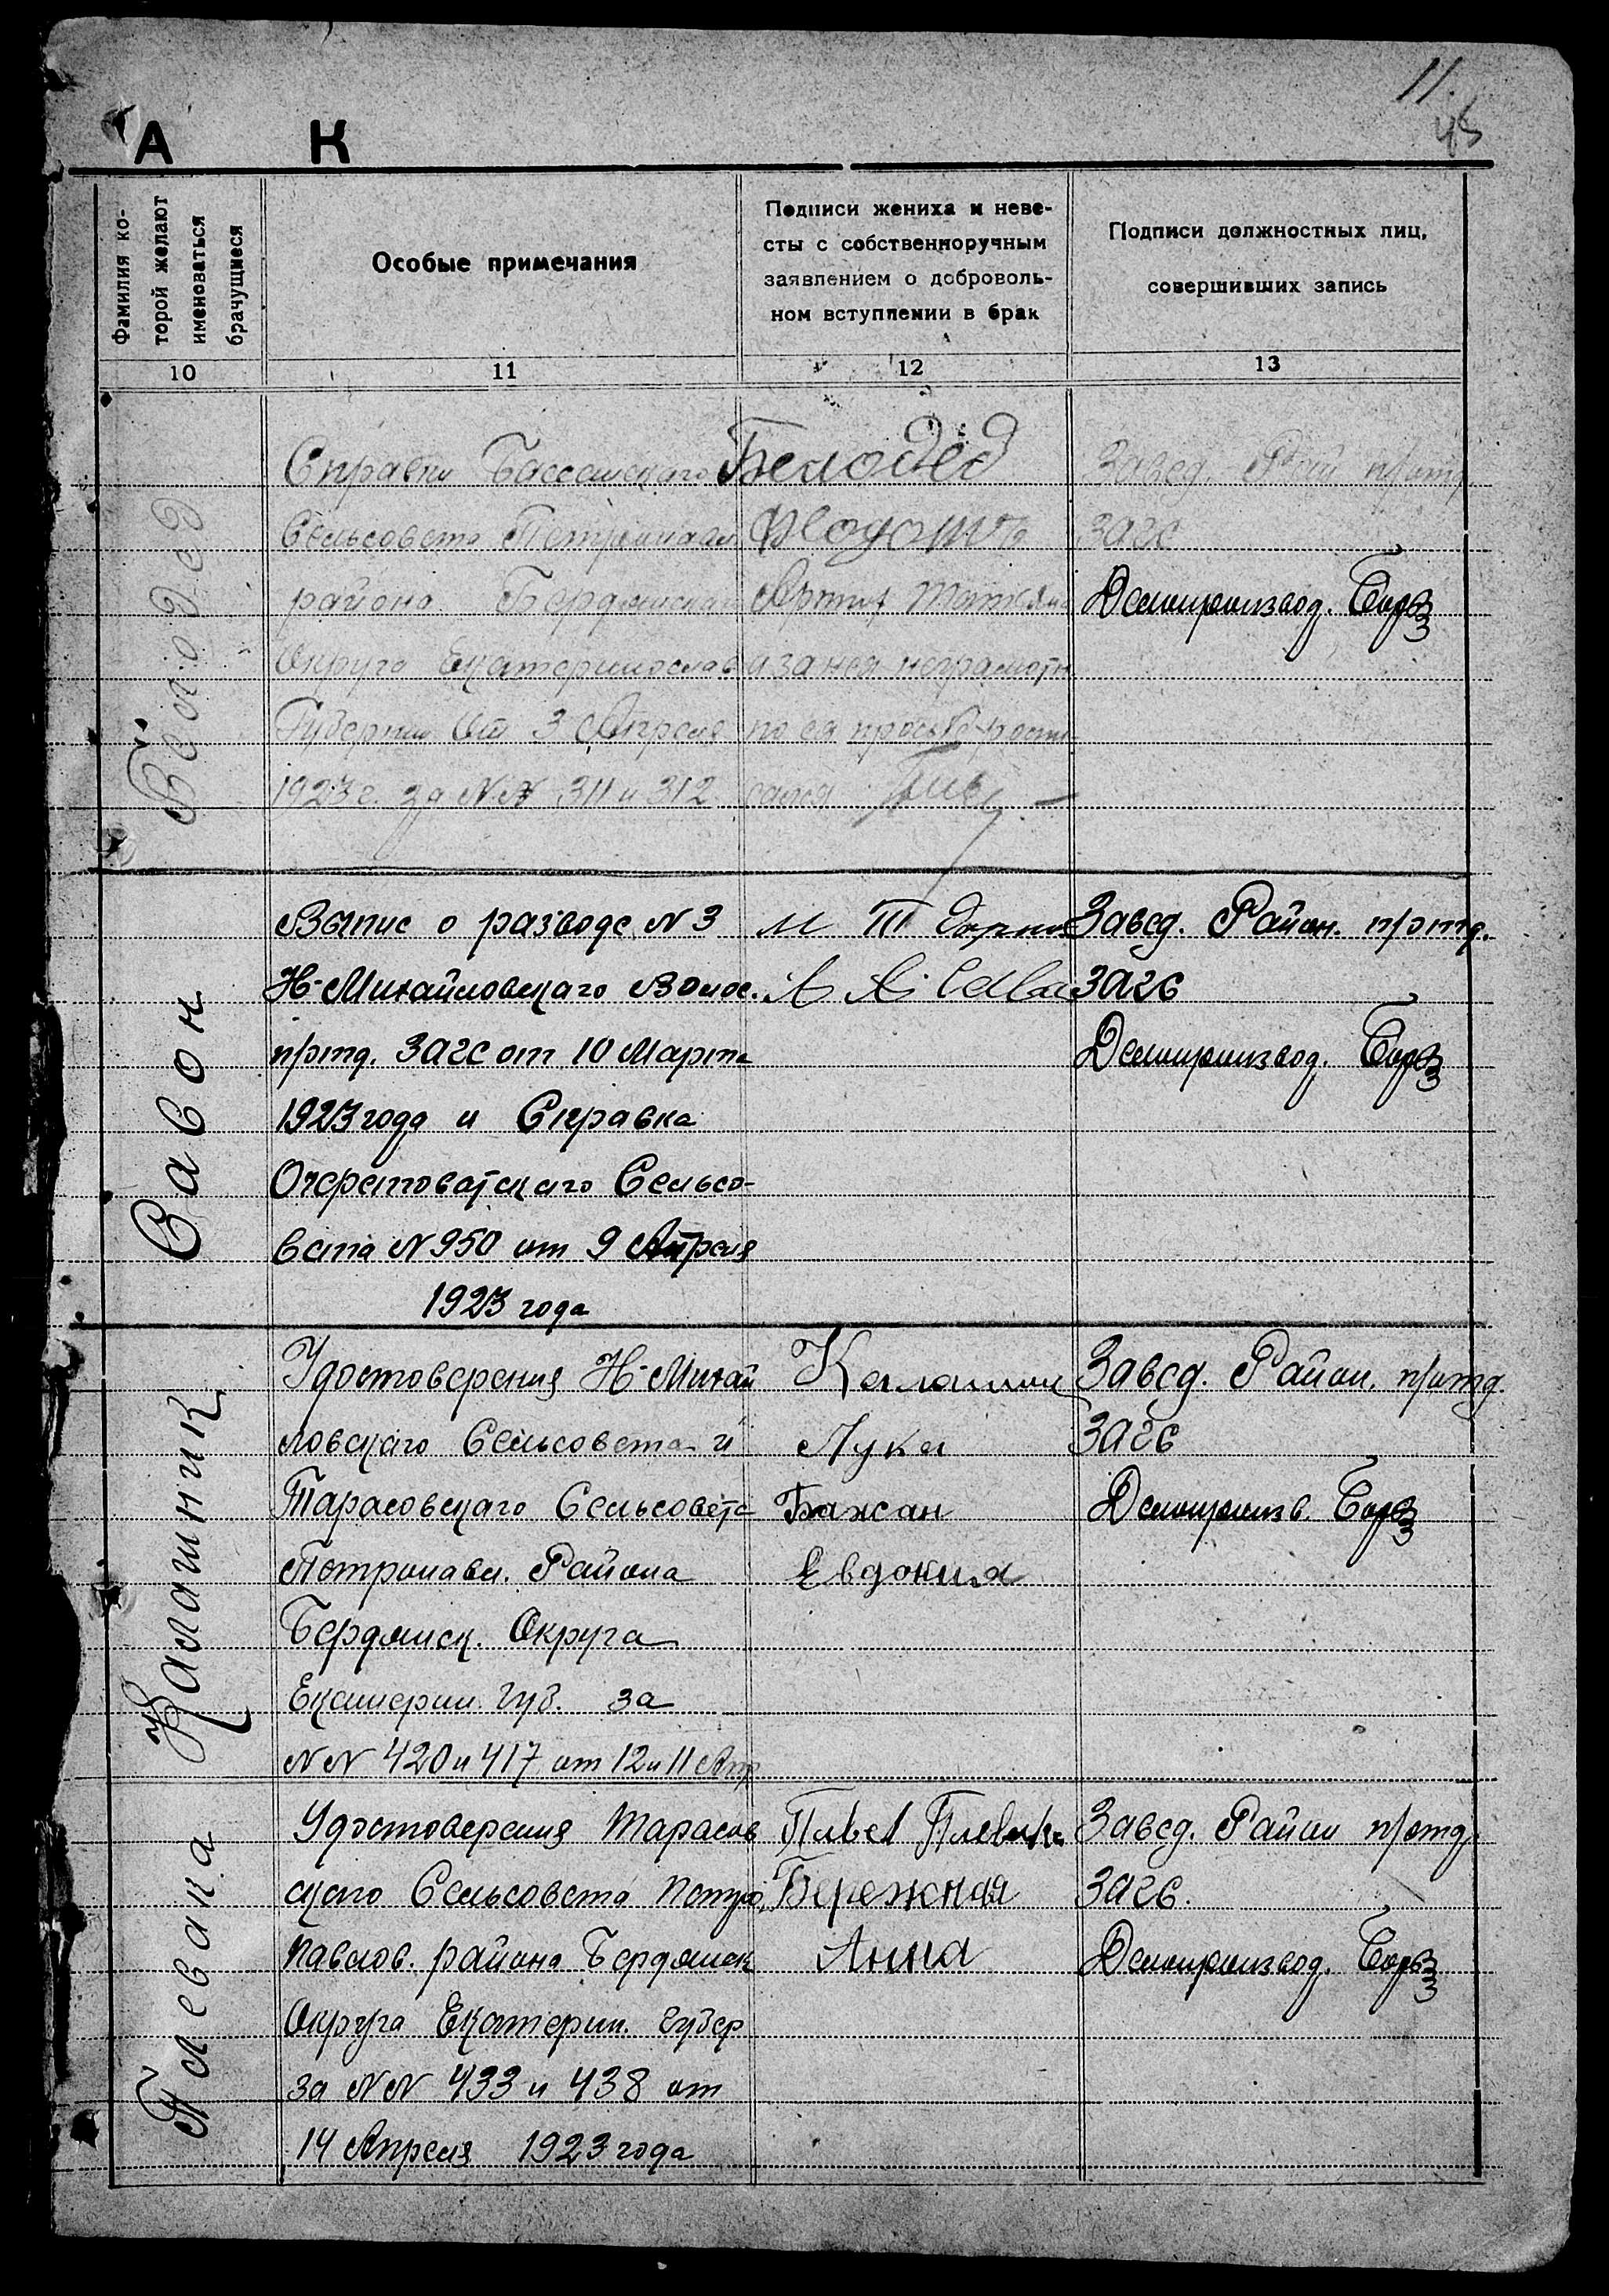 11.
45
А К
Фамилия ко-
торой желают
именоваться
брачущиеся
Особые примечания
Подписи жениха и неве-
сты с собственноручным
заявлением о доброволь-
ном вступлении в брак
Подписи должностных лиц,
совершивших запись
10
11
12
13
Белодед
Справки
Сельсовета
района Бердянскаго
Округа Екатеринослав
Губернии от 3 Апреля
1923 г. за NN 311 и 312
Белодед
Федоть
неграмотн
по ея просьбе
Завед. Рай п/отд
ЗАГС
Делопроизвод.
Савон
Выпис о разводе N 3
Н-Михайловскаго Волос.
п/отд. ЗАГС от 10 Марта
1923 года и Справка
Очеретоватскаго Сельсо-
вета N 950 от 9 Апреля
1923 года
Завед. Район. п/отд.
ЗАГС
Делопроизвод.
Калашник
Удостоверения Н-Михай
ловскаго Сельсовета и
Тарасовскаго Сельсовета
Петропавл. Района
Бердянск. Округа
Екатерин. Губ. за
NN 420 и 417 от 12 и 11 Апр
Калашник
Лука
Бажан
Евдокия
Завед. Район. п/отд.
ЗАГС
Делопроизв.
Плевака
Удостоверения Тарасов
скаго Сельсовета Петро
павлов. района Бердянск
Округа Екатерин. губер
за NN 433 и 438 от
14 Апреля 1923 года
Павел Плевака
Бережная
Анна
Завед. Район п/отд.
ЗАГС.
Делопроизвод.